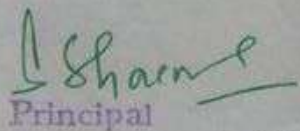 S Sharma
Principal